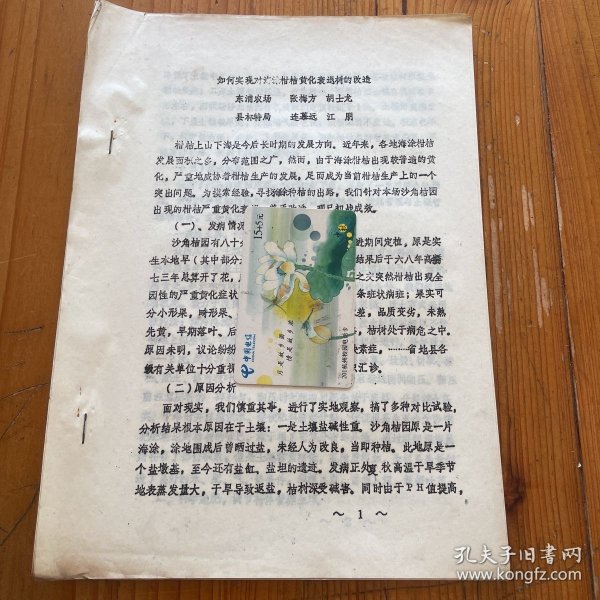 如何实现对海涂柑桔黄化衰退树的改造
东浦农场 张梅方 胡士龙
县林特局 连慕远 江朋
柑桔上山下海是今后长时期的发展方向。近年来，各地海涂柑桔
发展面积之多，分布范围之广，然而，由于海涂柑桔出现较普遍的黄
化，严重地威胁着柑桔生产的发展，足而成为当前柑桔生产上的一个
突出问题。为摸索经验，寻找海涂种桔的出路，我们针对本场沙角桔园
出现的柑桔严重黄化衰
（一）、发病情况
沙角桔园有八十分 进期间定植，原是实
生本地早（其中部分 结果后于六八年高接
七三年总算开了花， 之交突然柑桔出现全
因性的严重黄化症状 条班状病斑；果实可
分小形果，畸形果、 差，品质变劣，未熟
先黄，早期落叶、后 ，桔树处于病危之中。
原因未明，议论纷纷 缺素症，……省地县各
级有关单位十分重视 汇诊。
（二）原因分析
面对现实，我们慎重其事，进行了实地观察，搞了多种对比试验，
分析结果根本原因在于土壤：一是土壤盐碱性重。沙角桔园原是一片
海涂，涂地围成后曾晒过盐，未经人为改良，当即种桔。此地原是一
个盐墩基，至今还有盐缸、盐坦的遗迹。发病正处夏秋高温干旱季节
地表蒸发量大，干旱导致返盐，桔树深受碱害。同时由于PH值提高，
～1～
15+5元
中国电信
CHINA TELECOM
月是故乡圆
情是故乡浓
201杭州校园电话卡
孔夫子旧书网
www.kongfz.com